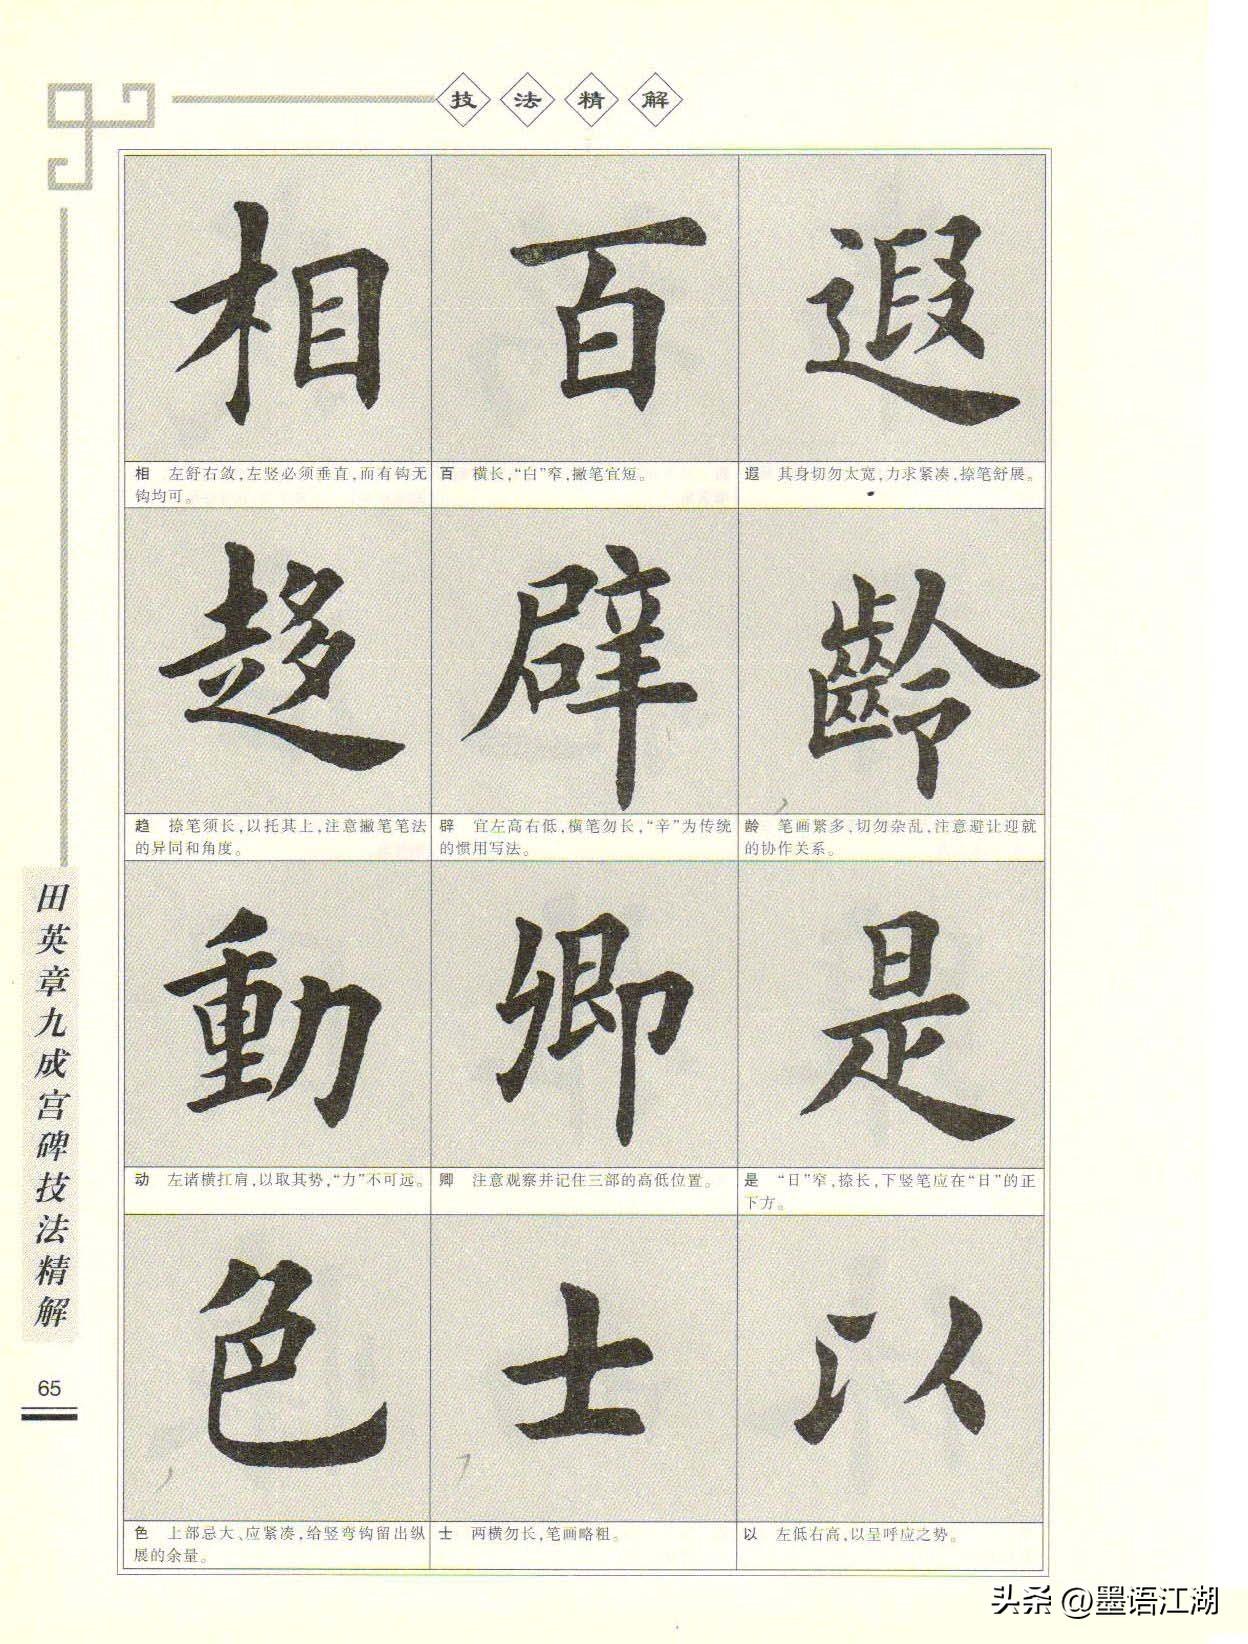 技法精解
相 百 遐
相 左舒右敛,左竖必须垂直,而有钩无
钩均可。
百 横长,“白”窄,撇笔宜短。
遐 其身切勿太宽,力求紧凑,捺笔舒展。
趍 辟 齡
趋 捺笔须长,以托其上,注意撇笔笔法
的异同和角度。
辟 宜左高右低,横笔勿长,“辛”为传统
的惯用写法。
龄 笔画繁多,切勿杂乱,注意避让迎就
的协作关系。
動 卿 是
动 左诸横扛肩,以取其势,“力”不可远。
卿 注意观察并记住三部的高低位置。
是 “日”窄,捺长,下竖笔应在“日”的正
下方。
色 士 以
色 上部忌大、应紧凑,给竖弯钩留出纵
展的余量。
士 两横勿长,笔画略粗。
以 左低右高,以呈呼应之势。
田英章九成宫碑技法精解
65
头条 @墨语江湖